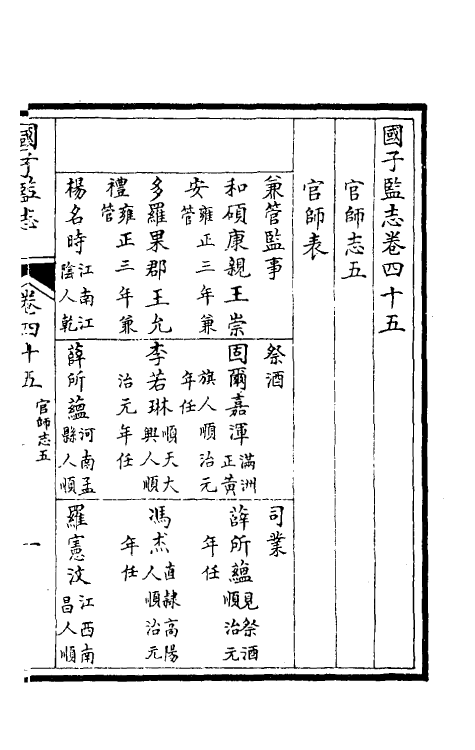 國子監志卷四十五
官師志五
官師表
兼管監事
和碩康親王崇
安雍正三年兼管
多羅果郡王允
禮雍正三年兼管
楊名時江南江陰人乾
祭酒
固爾嘉渾滿洲正黃
旗人順治元年任
李若琳順天大興人順
治元年任
薛所蘊河南孟縣人順
司業
薛所蘊見祭酒順治元
年任
馮杰直隸高陽人順治元
年任
羅憲汶江西南昌人順
國子監志
卷四十五
官師志五
一